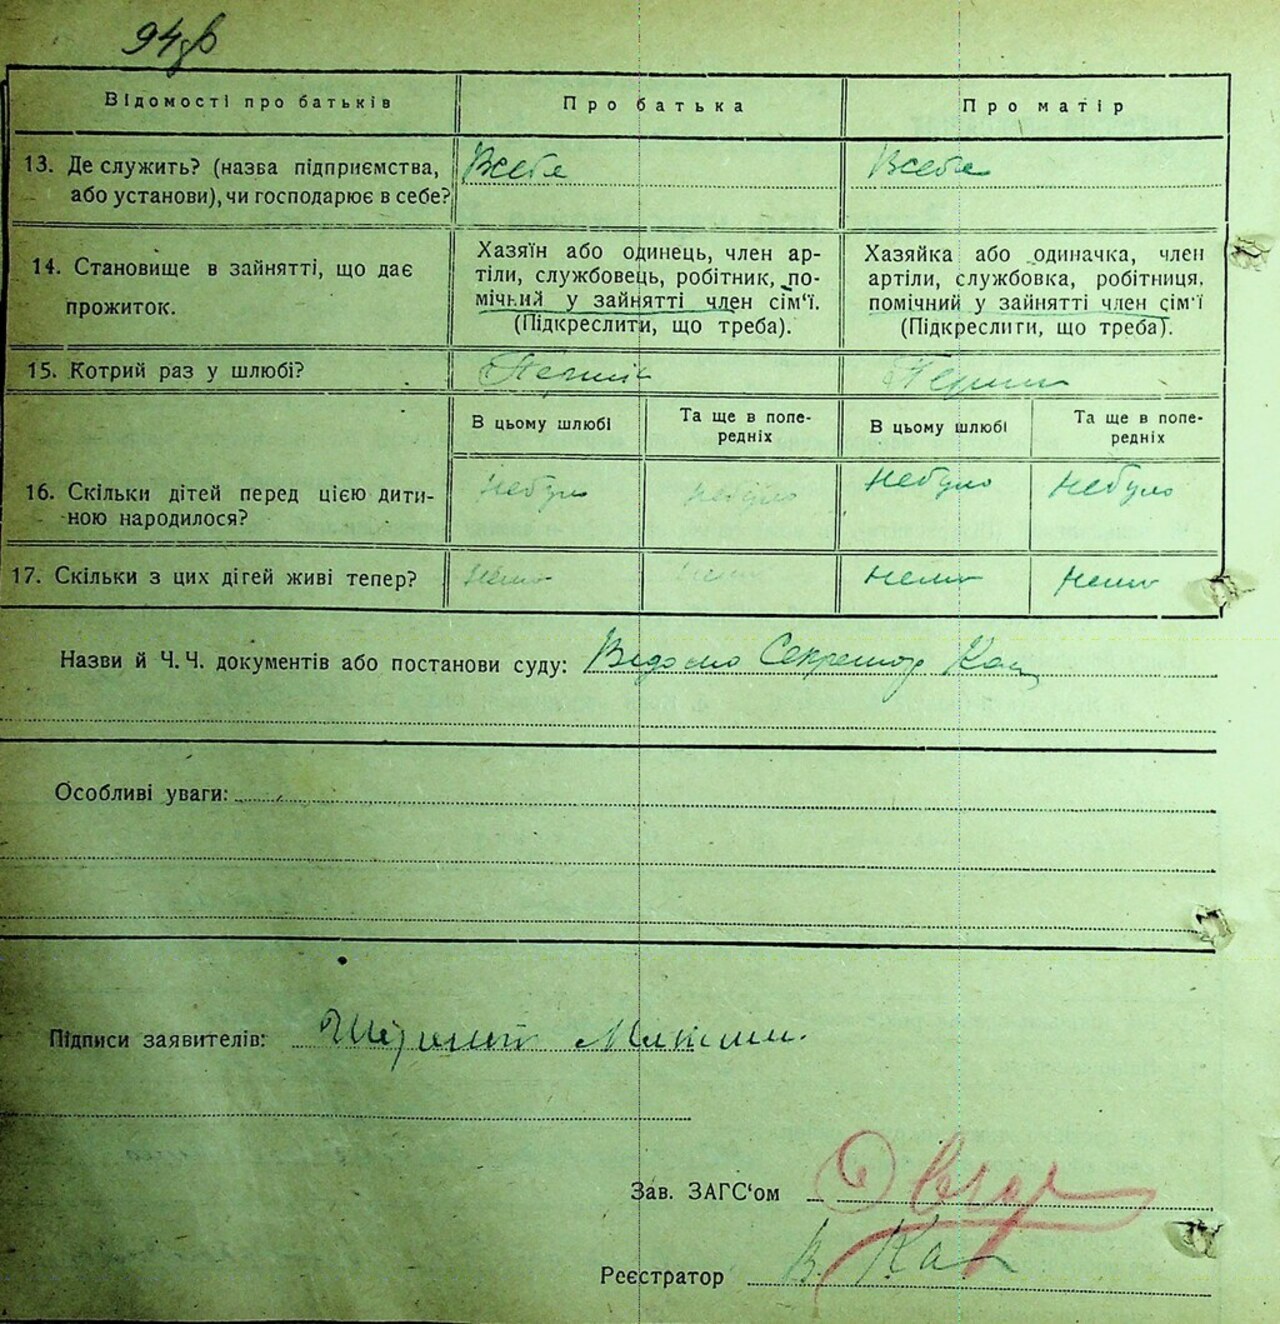 94зв
Відомості про батьків Про батька Про матір
13. Де служить? (назва підприємства, або установи), чи господарює в себе? Всебе Всебе
14. Становище в зайнятті, що дає прожиток.
Хазяїн або одинець, член ар-
тіли, службовець, робітник, по-
мічний у зайнятті член сім'ї.
(Підкреслити, що треба).
Хазяйка або одиначка, член
артіли, службовка, робітниця,
помічний у зайнятті член сім'ї
(Підкреслити, що треба).
15. Котрий раз у шлюбі?
В цьому шлюбі Та ще в попе-
редніх В цьому шлюбі Та ще в попе-
редніх
16. Скільки дітей перед цією дити-
ною народилося? небуло небуло небуло небуло
17. Скільки з цих дітей живі тепер? нема нема нема нема
Назви й Ч. Ч. документів або постанови суду: Відомо Секретар Кац
Особливі уваги:
Підписи заявителів:
Зав. ЗАГС'ом
Реєстратор В. Кац